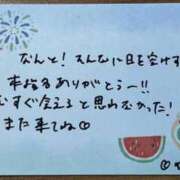 なんと!そんなに日を空けず
本指名ありがとうー!!
むすぐ会えると思わなかった!
また来てね♡